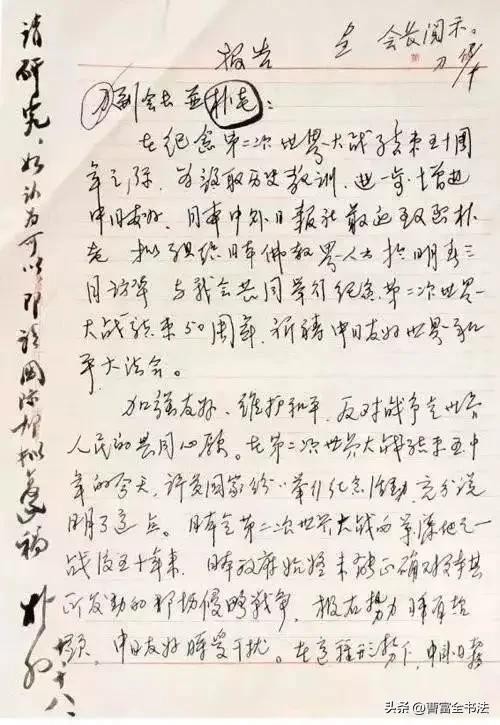 呈 会长阅示。
报告
刀副会长并朴老：
在纪念第二次世界大战结束五十周
年之际，为汲取历史教训，进一步增进
中日友好，日本中外日报社最近致函朴
老 拟组织日本佛教界人士於明春三
月访华 与我会共同举行纪念第二次世界
大战结束50周年，祈祷中日友好世界和
平大法会。
加强友好、维护和平、反对战争是世界
人民的共同心愿。在第二次世界大战结束五十
年的今天，许多国家纷纷举行纪念活动，充分说
明了这点。日本是第二次世界大战的策源地之一
战后五十年来，日本政府始终未能正确对待其
所发动的那场侵略战争，极右势力时有抬
头，中日友好时受干扰。在这种形势下，中外日报
请研究，如认为可以即请国际部拟复稿
朴初
十八
头条 @曹富全书法